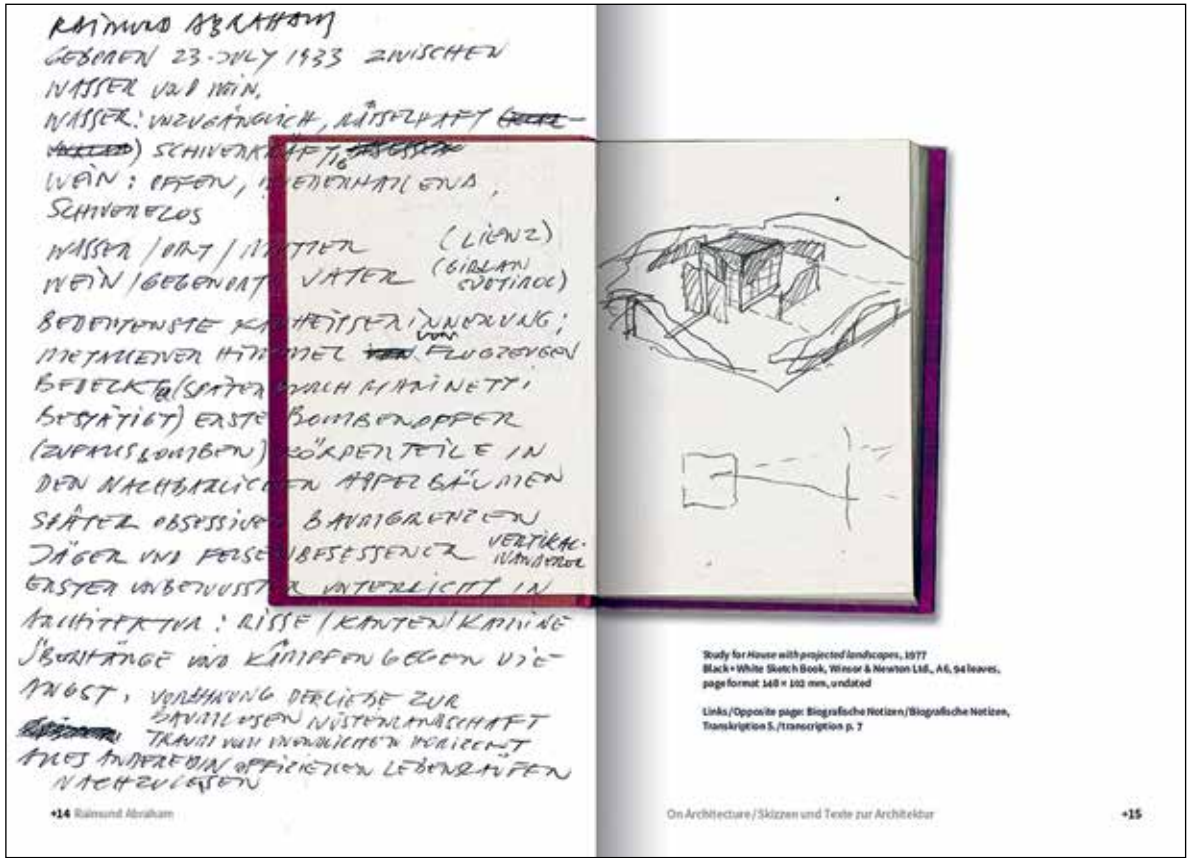 RAIMUND ABRAHAM
GEBOREN 23. JULY 1933 ZWISCHEN
WASSER UND WEIN.
WASSER: UNZUGÄNGLICH, RÄTSELHAFT
SCHWERKRÄFTIG
WEIN: OFFEN,
SCHWERELOS
WASSER / ORT / MUTTER (LIENZ)
WEIN / GEGENORT / VATER (GIRLAN
SÜDTIROL)
BEDEUTENSTE KINDHEITSERINNERUNG:
METALLENER HIMMEL VON FLUGZEUGEN
BEDECKT (SPÄTER DURCH MARINETTI
BESTÄTIGT) ERSTE BOMBENOPFER
(ZUFALLSBOMBEN) KÖRPERTEILE IN
DEN NACHBARLICHEN APFELBÄUMEN
SPÄTER OBSESSIVER
JÄGER UND FELSENBESESSENER VERTIKAL-
WANDERER
ERSTER UNBEWUSSTER UNTERRICHT IN
ARCHITEKTUR: RISSE / KANTEN / KAMINE
ÜBERHÄNGE UND KÄMPFEN GEGEN DIE
ANGST. VORAHNUNG DER LIEBE ZUR
BAUMLOSEN WÜSTENLANDSCHAFT
TRAUM VOM UNENDLICHEN HORIZONT
ALLES ANDERE IN OFFIZIELLEN LEBENSLÄUFEN
NACHZULESEN
+14 Raimund Abraham
Study for House with projected landscapes, 1977
Black + White Sketch Book, Winsor & Newton Ltd., A6, 94 leaves,
page format 148 × 102 mm, undated
Links / Opposite page: Biografische Notizen / Biografische Notizen,
Transkription S. / transcription p. 7
On Architecture / Skizzen und Texte zur Architektur
+15